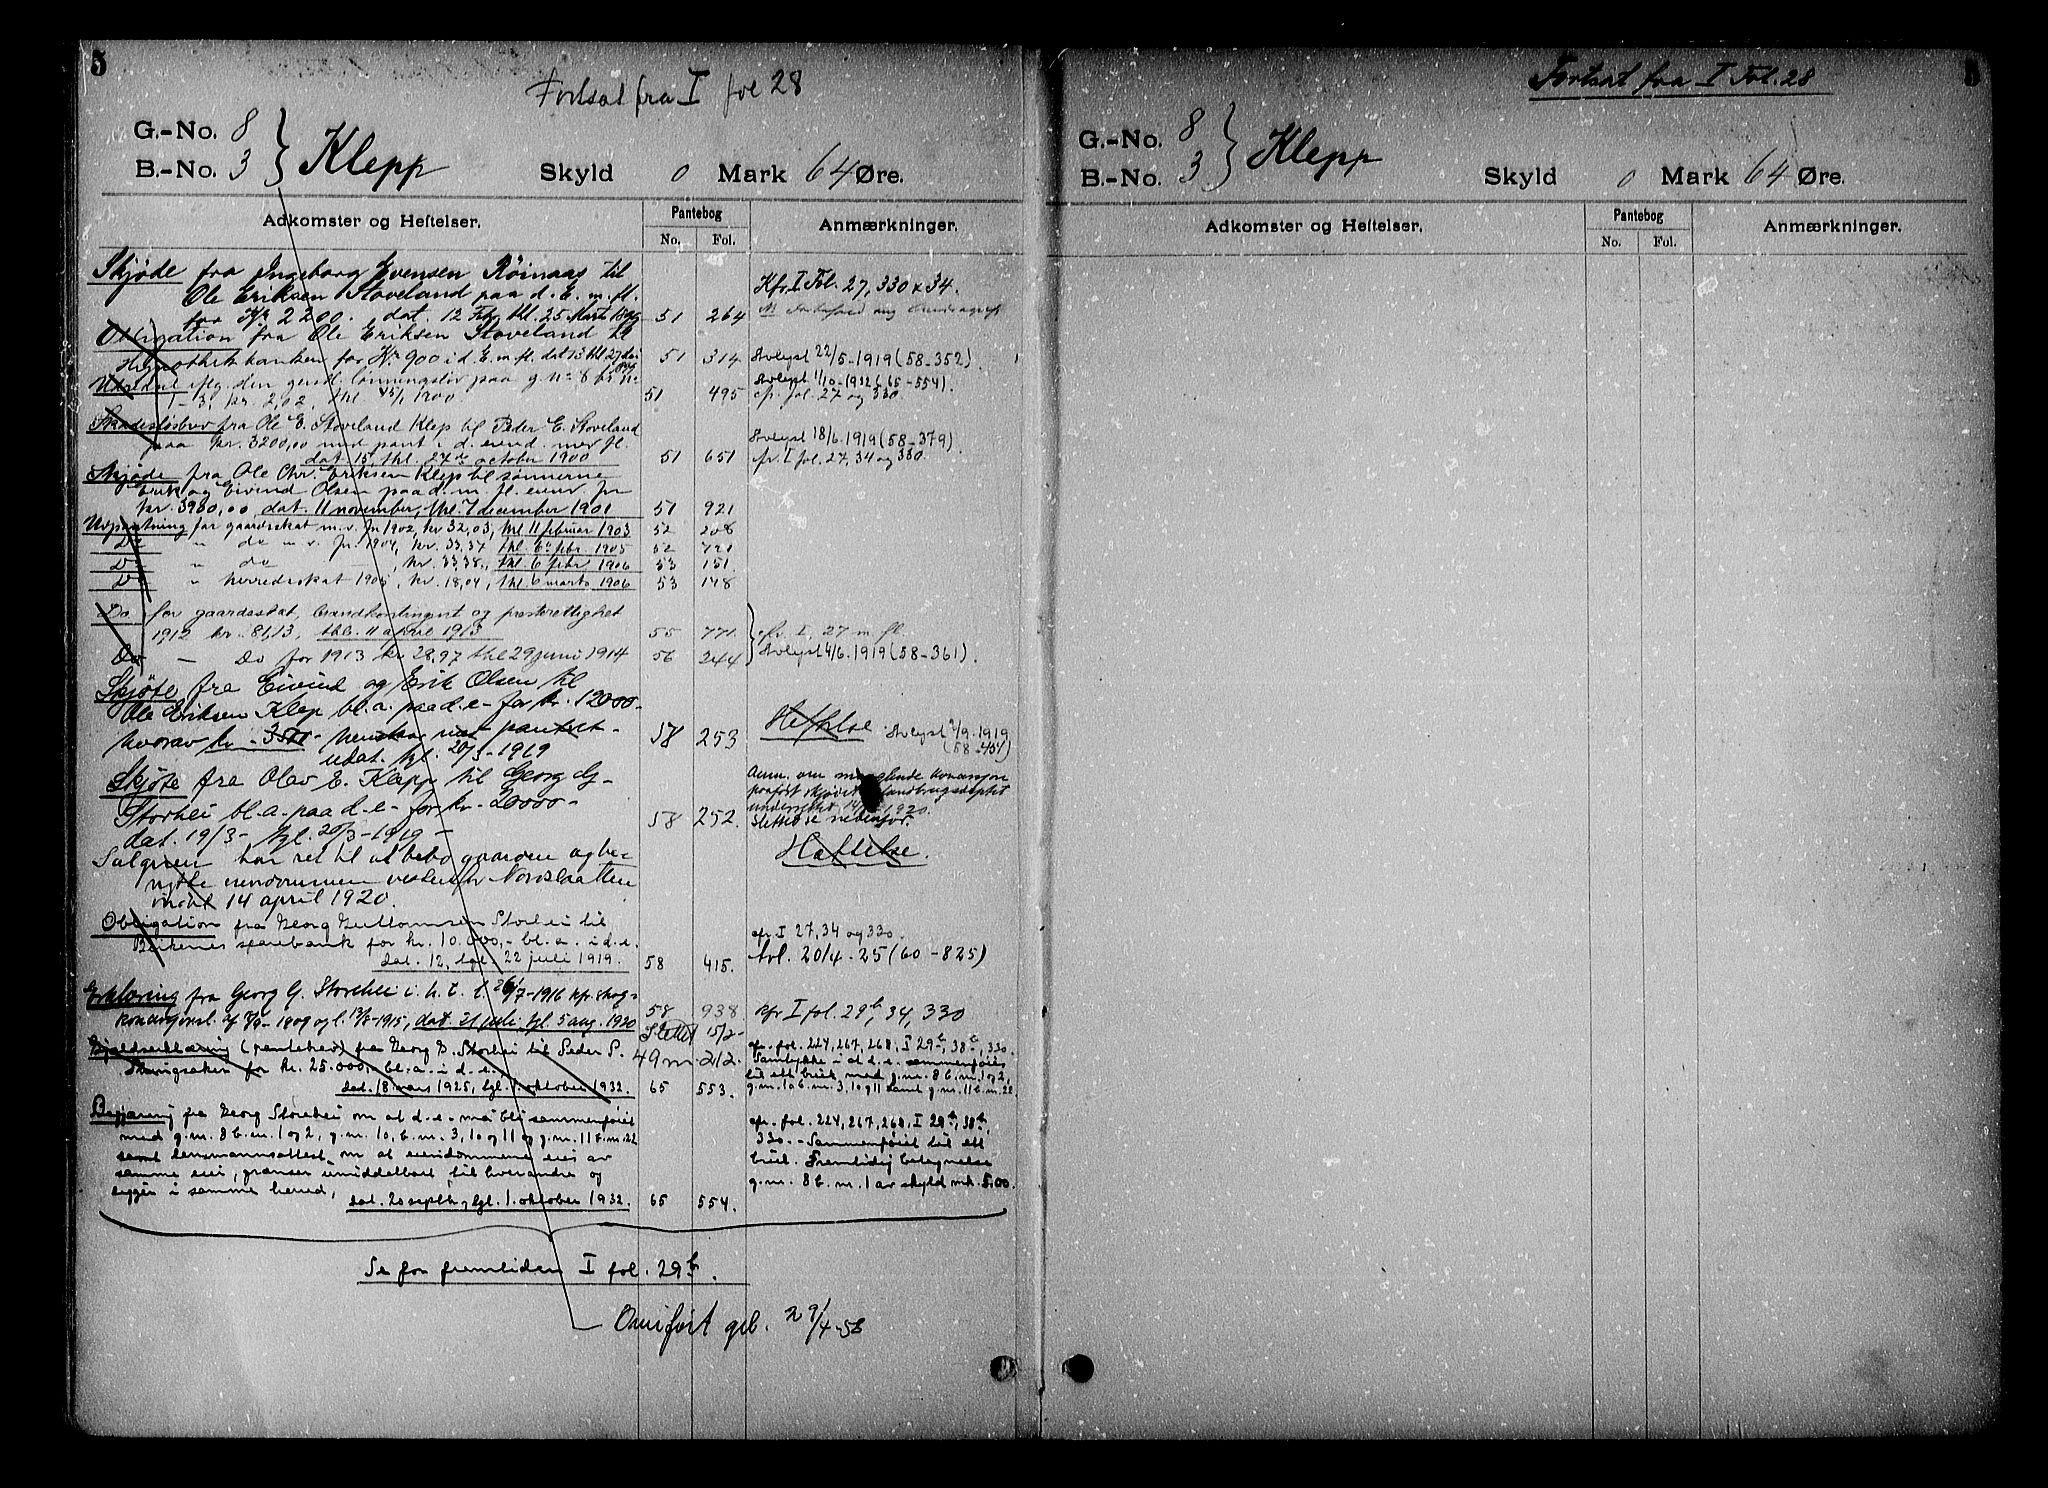 5
Fortsat fra I fol 28
G.-No. 8
B.-No. 3 } Klepp Skyld 0 Mark 64 Øre.
Adkomster og Heftelser. Pantebog Anmærkninger.
No. Fol.
Skjøde fra Ingeborg Evensen Röinaas til
Ole Eriksen Stoveland paa d. E. m. fl. Kfr I Fol. 27, 330 & 34.
for Kr 2200. dat. 12 Febr thl. 25 Mart 51 264
Obligation fra Ole Eriksen Stoveland til
Hypothekbanken for Kr 900 i d. E. m. fl. dat 13 thl 27 51 314 Avlyst 22/5-1919 (58-352).
Avlyst 1/10-1932 (65-554).
1-3, kr. 2,02, thl. 1900 51 495 cfr. fol. 27 og 330
Skadesløsbrev fra Ole E. Stoveland Klep til Peder E. Stoveland
paa kr. 3200,00 med pant i d. eiend. mer fl. Avlyst 18/6.1919 (58-379).
dat. 15 thl. 27de october 1900 51 651 cfr. I fol. 27, 34 og 330.
Skjøde fra Ole Chr. Eriksen Klep til sønnerne
Erik og Eivind Olsen paa d. m. fl. eiend. for
kr. 3930,00, dat. 11 november, thl. 7 december 1901 51 921
Udpantning for gaardsskat m.v. for 1902, kr 32,03, thl 11 februar 1903 52 208
Do " do m.v. for 1904, kr. 33,37 thl. 6te febr. 1905 52 721
Do " do kr. 33,38, thl. 6 febr 1906 53 151
Do " herredsskat 1905, kr. 18,04, thl. 6 marts 1906 53 148
Do for gaardsskat, brandkontingent og presterettighet
1912 kr. 81,13, thl. 11 april 1913 55 771. cfr. I, 27 m. fl.
Do - Do for 1913 kr 28,97 thl 29 juni 1914 56 244 Avlyst 4/6.1919 (58-361).
Skjøte fra Eivind og Erik Olsen til
Ole Eriksen Klep bl.a. paa d.e. for kr. 12000- Heftelse Avlyst 2/9-1919
hvorav kr - 3500 - henstaar mot panteret - 58 253 (58-454)
udat. tgl. 20/3-1919
Skjøte fra Olav E. Klepp til Georg G. Anm. om manglende konsesjon
Storhei bl.a. paa d.e. for kr. 20000- 58 252.
dat. 19/3- tgl. 20/3-1919 - Slettes se nedenfor.
Sælgeren har ret til at bebo gaarden og be- Heftelse.
nytte eiendommen vestenfor
indtil 14 april 1920.
Obligation fra Georg Guttormsen Storhei til
Birkenes sparebank for kr. 10.000,- bl.a. i d.e. cfr. I 27, 34 og 330.
dat. 12, tgl. 22 juli 1919. 58 415. Avl. 20/4-25 (60-825)
Erklæring fra Georg G. Storehei i. h. t. l. 26/7-1916 kfr. skog-
konsesjonsl. af 8/9-1809 og l. 13/8-1915, dat. 21 juli tgl. 5 aug. 1920 58 938 kfr I fol. 29b, 34, 330
Slettet 15/2-
49 m. 212.
Gjeldserklæring (pantebrev) fra Georg G. Storhei til Peder P. cfr. fol. 224, 267, 268, I 29b, 38b, 330.
for kr. 25.000,- bl.a. i d.e. Samtykke i at d.e. sammenføies
til ett bruk med g.nr. 8 b.nr. 1 og 2,
dat. 18 mars 1925, tgl. 1. oktober 1932. 65 553. g.nr. 10 b.nr. 3, 10 og 11 samt g.nr. 11 b.nr. 22
Begjæring fra Georg Storehei om at d.e. må bli sammenføiet cfr. fol. 224, 267, 268, I 29b, 38b,
med g.nr. 8 b.nr. 1 og 2, g.nr. 10, b.nr. 3, 10 og 11 og g.nr. 11 b.nr. 22 330. - Sammenføiet til ett
samt lensmannsattest om at eiendommene eies av bruk. Fremtidig betegnelse
samme eier, grenser umiddelbart til hverandre og g.nr. 8 b.nr. 1 av skyld mk. 5.00.
ligger i samme herred,
dat. 20 septbr, tgl. 1. oktober 1932. 65 554.
Se for fremtiden I fol. 29b.
Omført gib. 29/4-58
Fortsat fra I Fol. 28
G.-No. 8
B.-No. 3 } Klepp Skyld 0 Mark 64 Øre.
Adkomster og Heftelser. Pantebog Anmærkninger.
No. Fol.